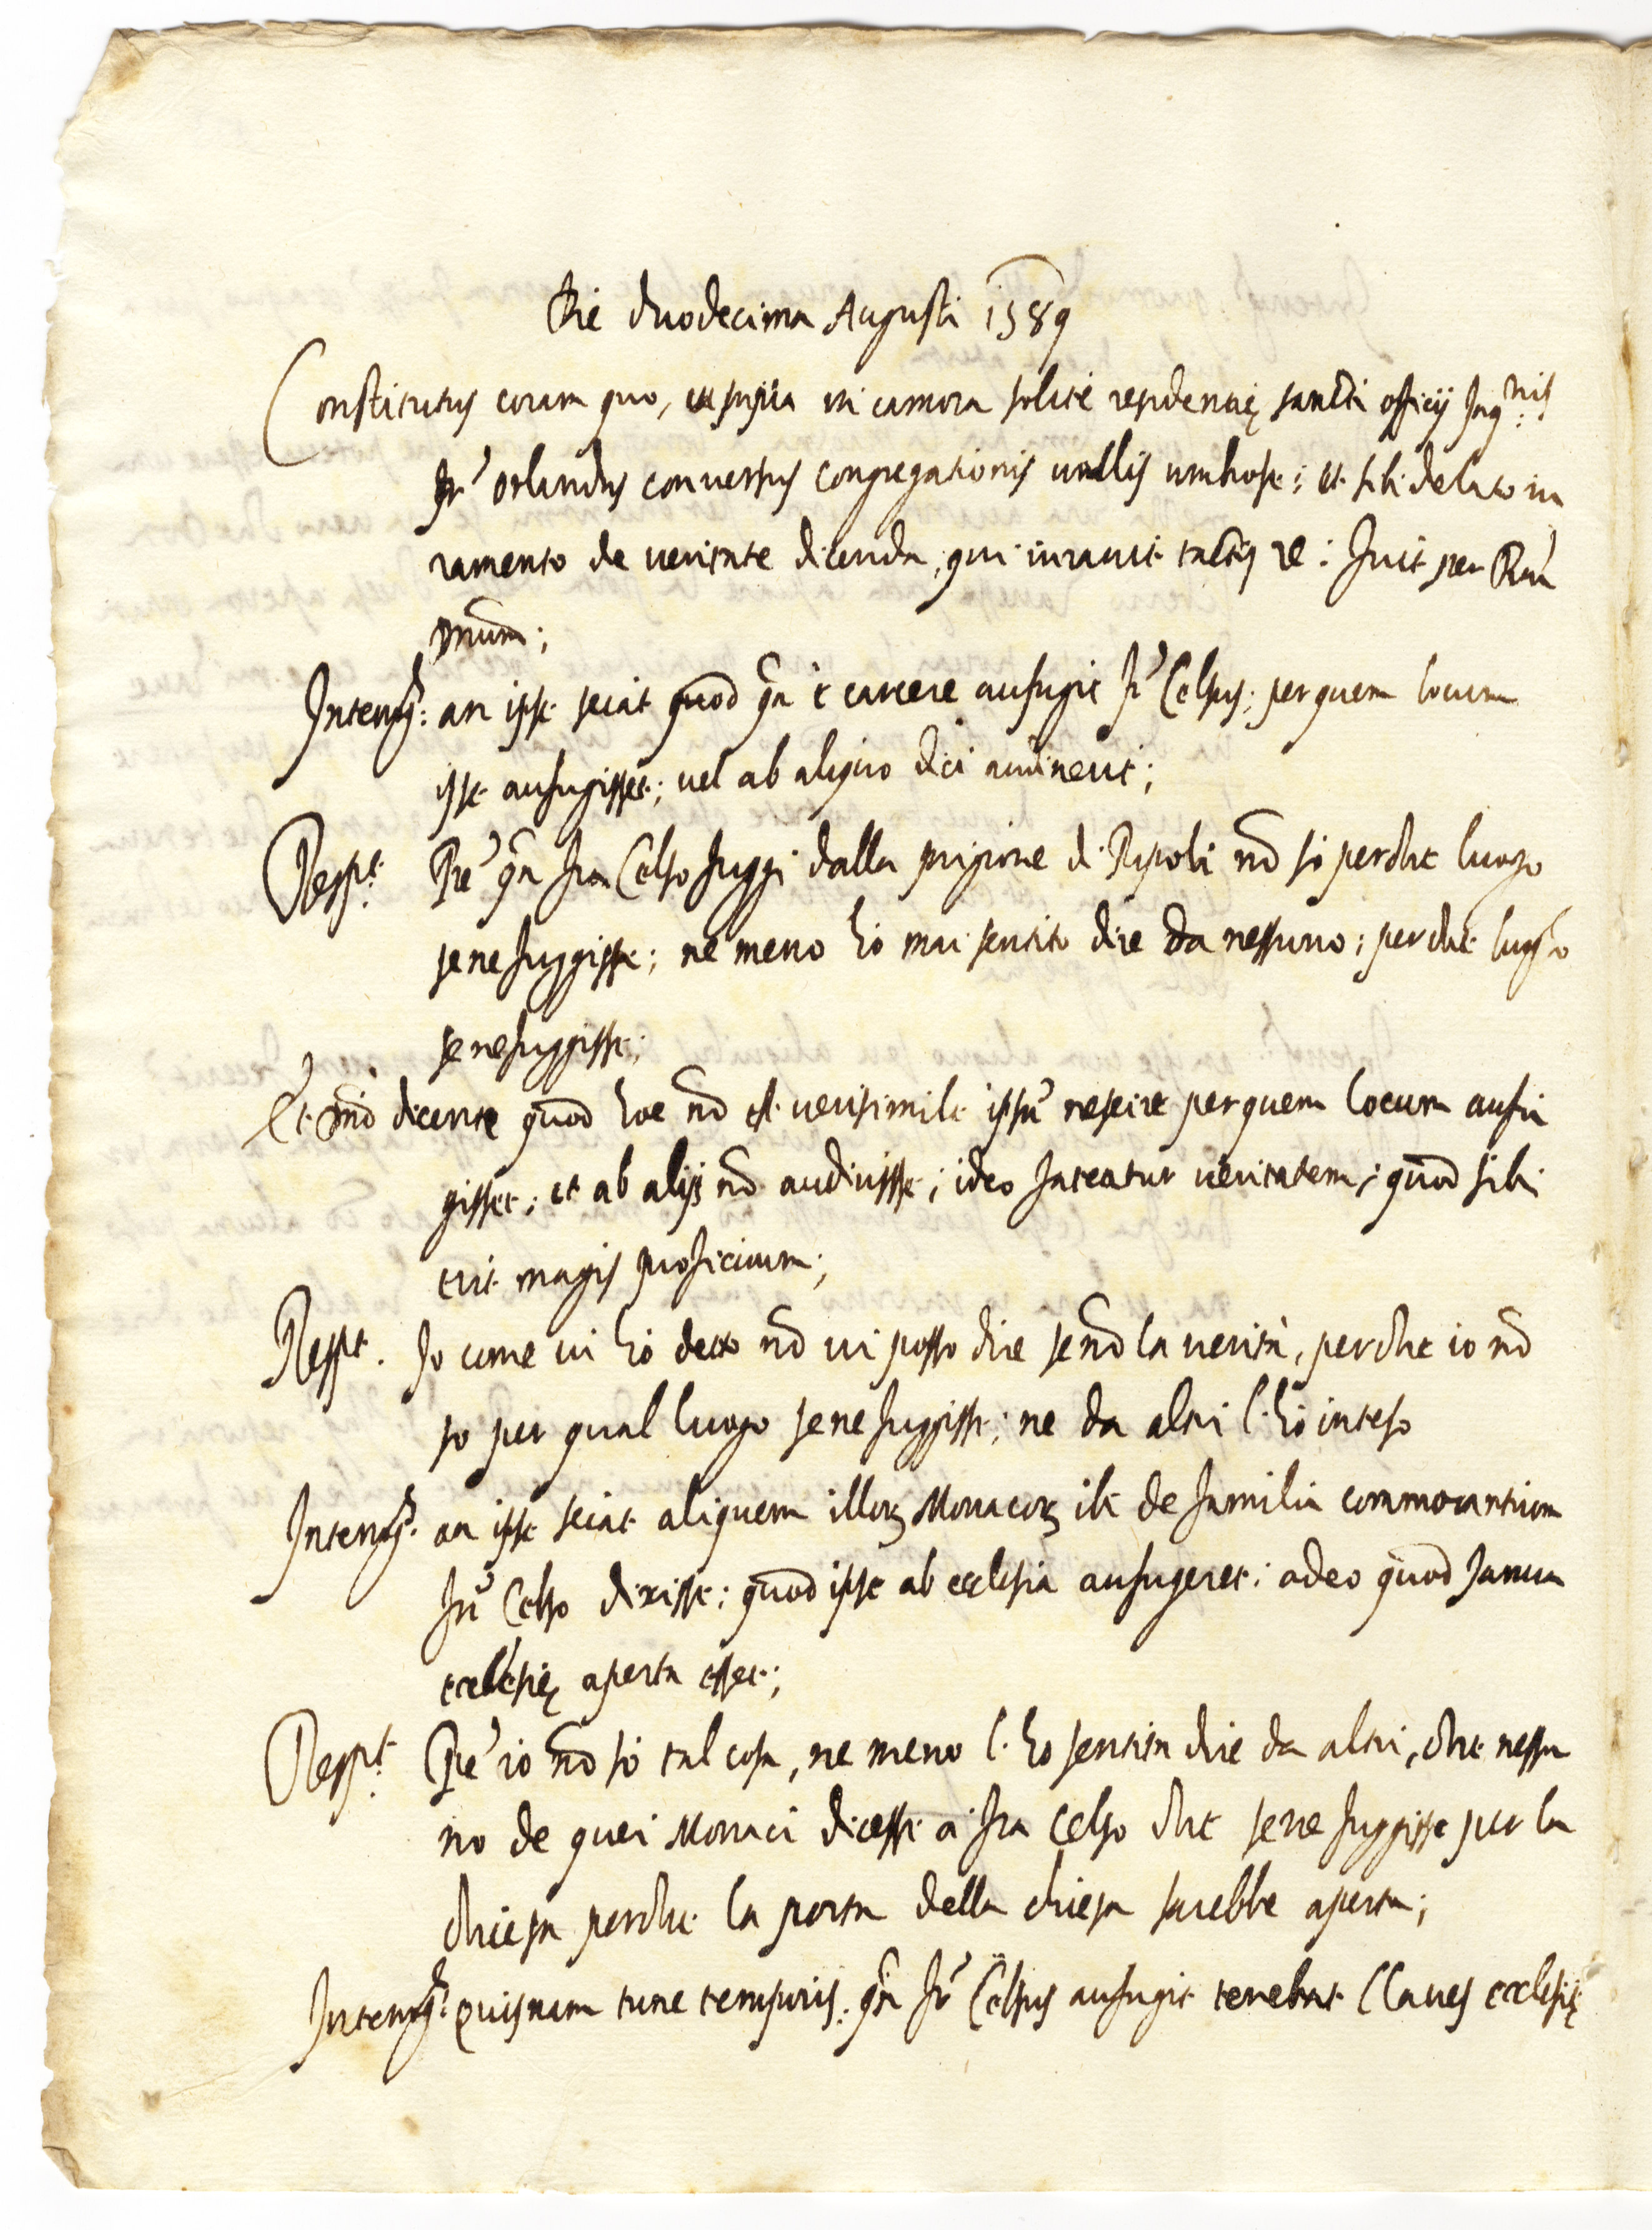 Die duodecima Augusti 1589
Constitutus coram quo, ut supra in camera solite residentię sancti officij Inq.nis
fr' Orlandus conuersus congregationis uallis umbrose; et sibi delato iu
ramento de ueritate dicenda, qui iurauit tactis re: fuit per Rm
Dnum;
Interrog.: an ipse sciat quod qn è carcere aufugit fr' Celsus; per quem locum
ipse aufugisset; uel ab aliquo dici audiuerit;
Resp.t Pre' qn fra Celso fuggì dalla prigione di Ripoli nō so perche luogo
sene fuggisse; ne meno hò mai sentito dire da nessuno; perche luogo
se nefuggisse;
Et dno dicente quod hoc nō est uerisimile ipsū nescire per quem locum aufu
gisset; et ab alijs nō audiuisse; ideo fateatur ueritatem; quod sibi
erit magis proficium;
Resp.t Io come ui hò detto nō ui posso dire senō la uerità, perche io nō
so per qual luogo sene fuggisse; ne da altri l'hò inteso
Interrog. an ipse sciat aliquem illorꝝ Monacorꝝ ibi de familia commorantium
fri' Celso dixisse; quod ipse ab ecclesia aufugeret; adeo quod Janua
ecclesię aperta esset;
Resp.t Pre' io nō sò tal cosa, ne meno l'ho sentita dire da altri, che nessu
no de quei Monaci dicesse a fra Celso che sene fuggisse per la
chiesa perche la porta della chiesa sarebbe aperta;
Interrog. quisnam tunc temporis. qn fr' Celsus aufugit tenebat Claues ecclesię